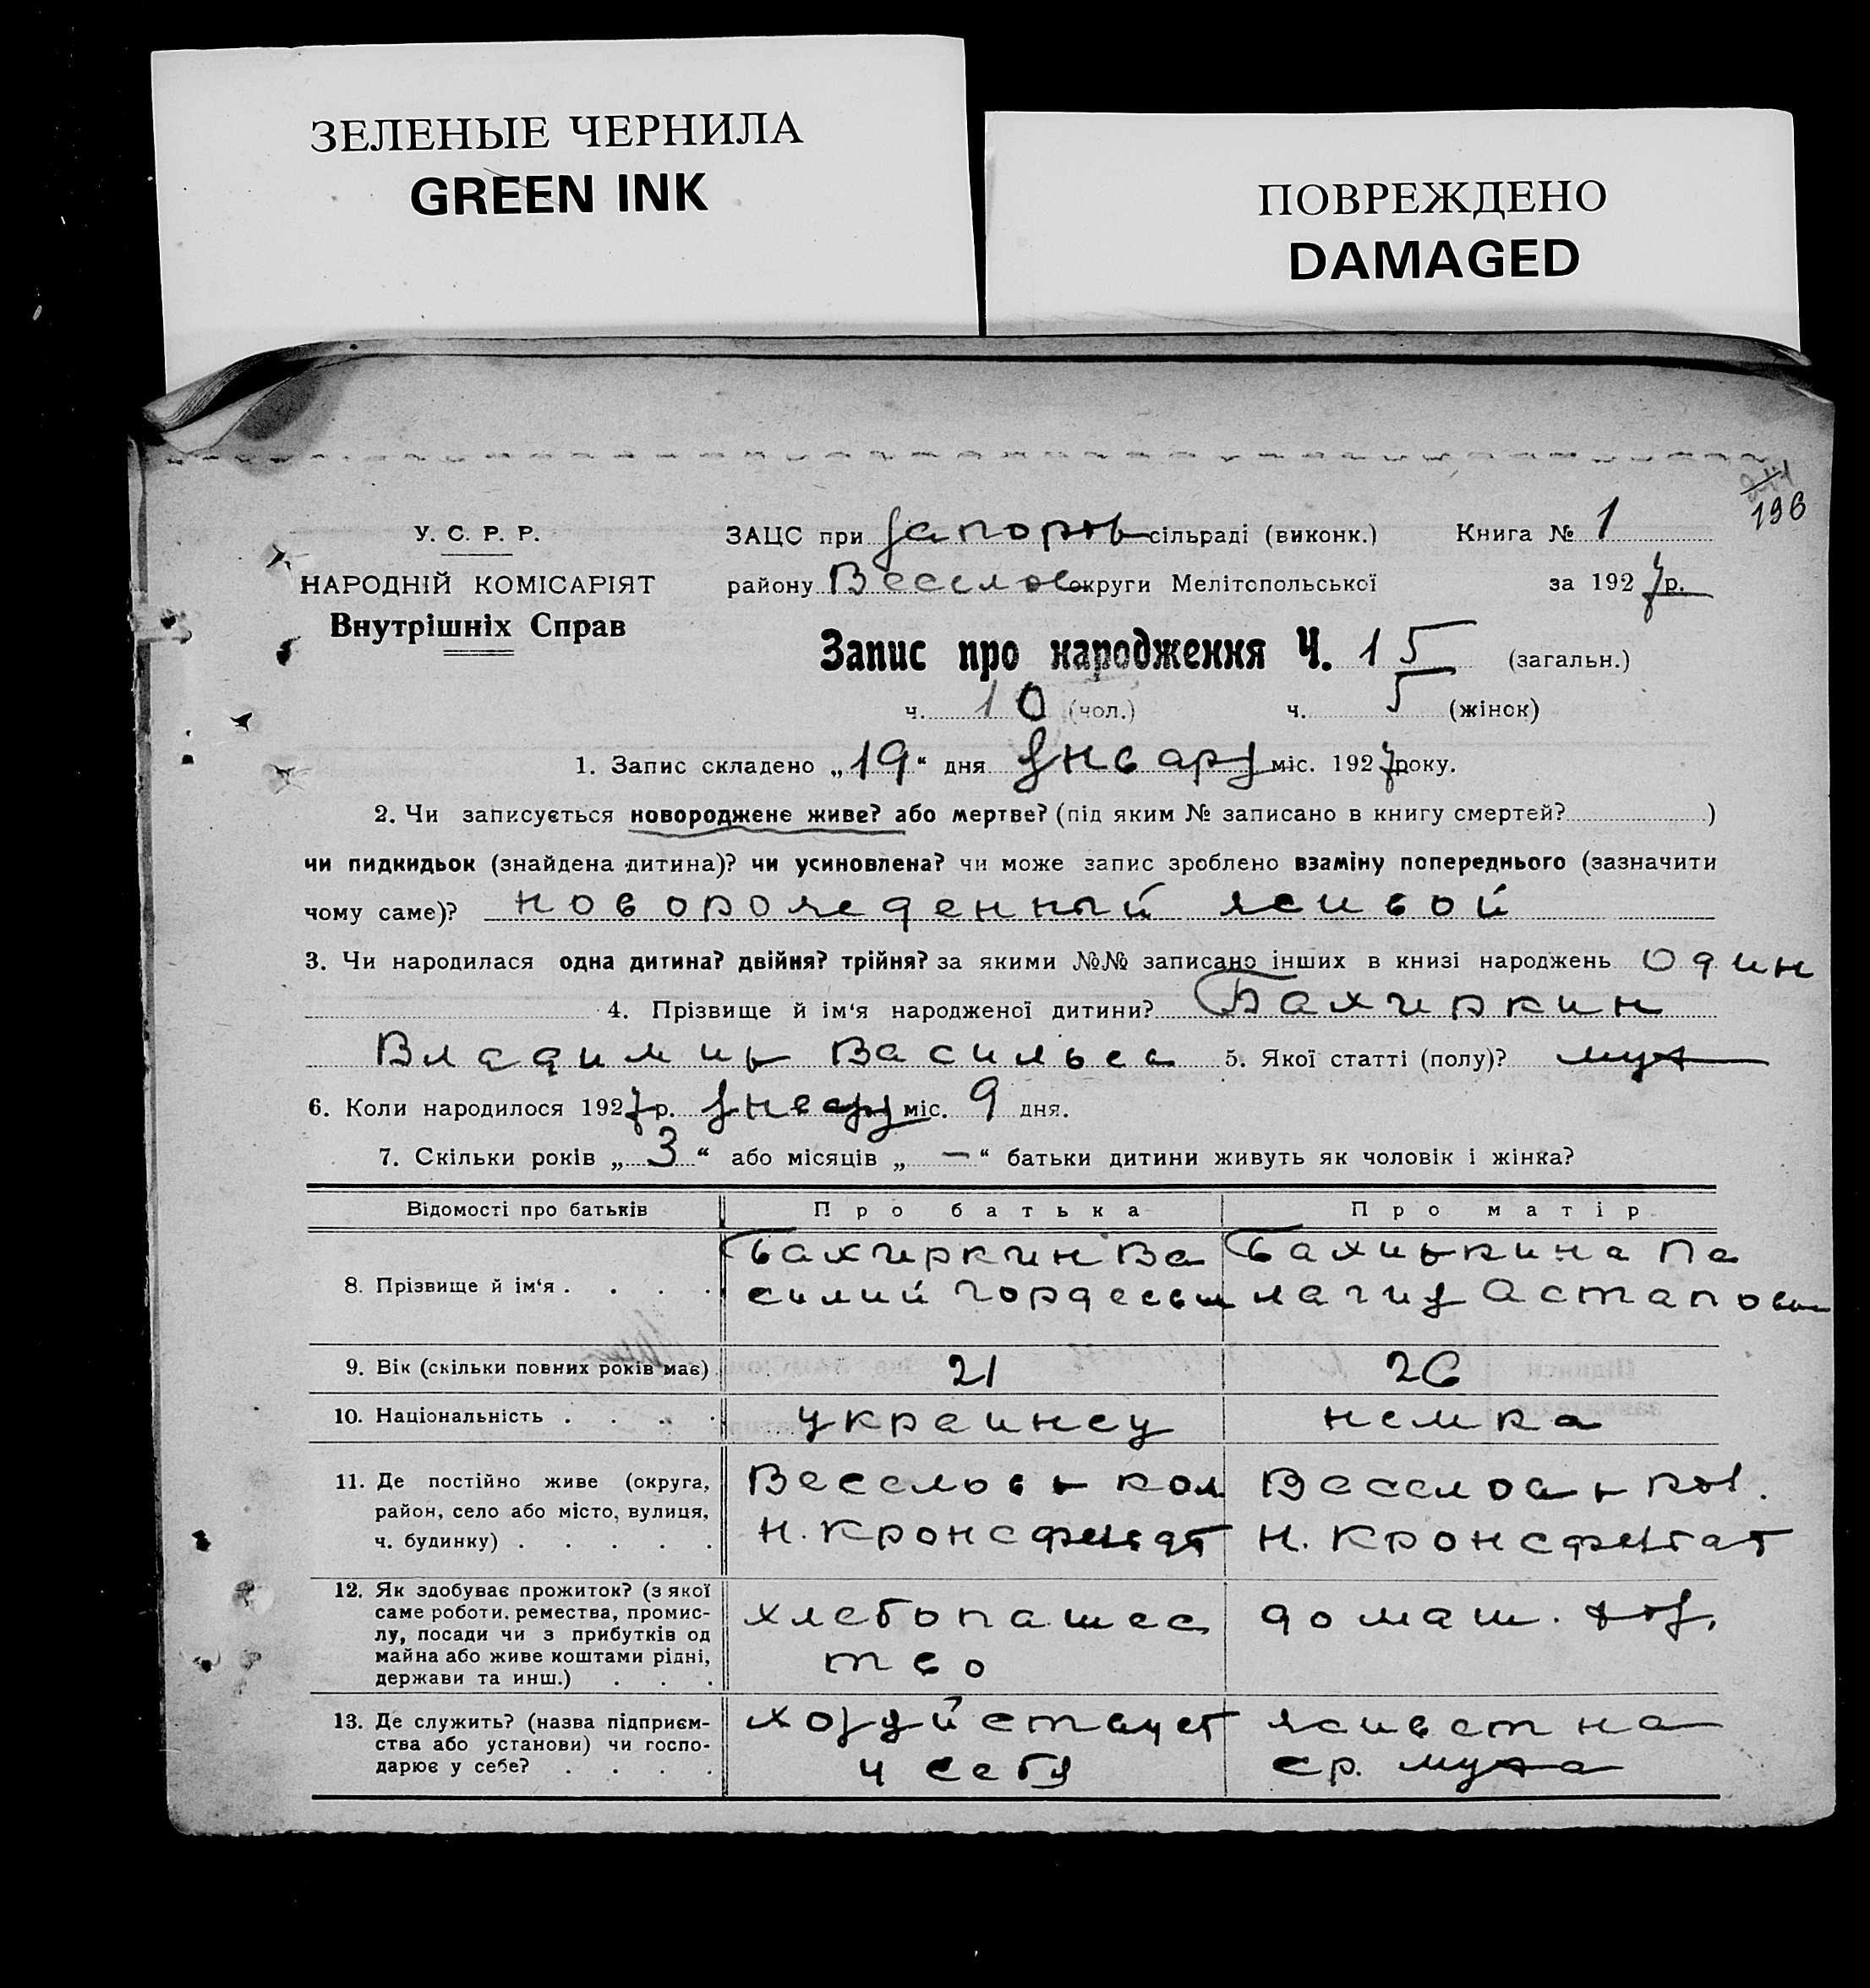 ЗЕЛЕНЫЕ ЧЕРНИЛА
GREEN INK
ПОВРЕЖДЕНО
DAMAGED
196
У. С. Р. Р.
НАРОДНІЙ КОМІСАРІЯТ
Внутрішніх Справ
ЗАЦС при Запорож сільраді (виконк.) Книга № 1
району Веселов округи Мелітопольської за 1927 р.
Запис про народження Ч. 15 (загальн.)
ч. 10 (чол.) ч. 5 (жінок)
1. Запис складено „19“ дня Январ міс. 1927 року.
2. Чи записується новороджене живе? або мертве? (під яким № записано в книгу смертей? )
чи пидкидьок (знайдена дитина)? чи усиновлена? чи може запис зроблено взаміну попереднього (зазначити
чому саме)? новорожденный живой
3. Чи народилася одна дитина? двійня? трійня? за якими №№ записано інших в книзі народжень один
4. Прізвище й ім'я народженої дитини? Бахчиркин
Владимир Васильев 5. Якої статті (полу)? муж
6. Коли народилося 1927 р. Январ міс. 9 дня.
7. Скільки років „ 3 “ або місяців „ — “ батьки дитини живуть як чоловік і жінка?
Відомості про батьків Про батька Про матір
8. Прізвище й ім'я . . . . Бахчиркин Ва Ба
силий Гордеевич лагия Астапов
9. Вік (скільки повних років має) 21 26
10. Національність . . . . украинец немка
11. Де постійно живе (округа, Веселов р кол Веселов р кол.
район, село або місто, вулиця, Н. Кронсфельдт Н. Кронсф
ч. будинку) . . . . .
12. Як здобуває прожиток? (з якої
саме роботи, ремества, промис- хлебопашес домаш. хоз.
лу, посади чи з прибутків од
майна або живе коштами рідні, тво
держави та инш.) . . .
13. Де служить? (назва підприєм- хозяйствует живет на
ства або установи) чи госпо-
дарює у себе? . . . . у себя ср. мужа